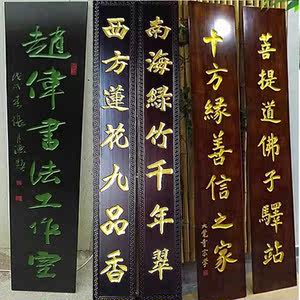 趙偉書法工作室
西方蓮花九品香
南海綠竹千年翠
十方緣善信之家
菩提道佛子驛站